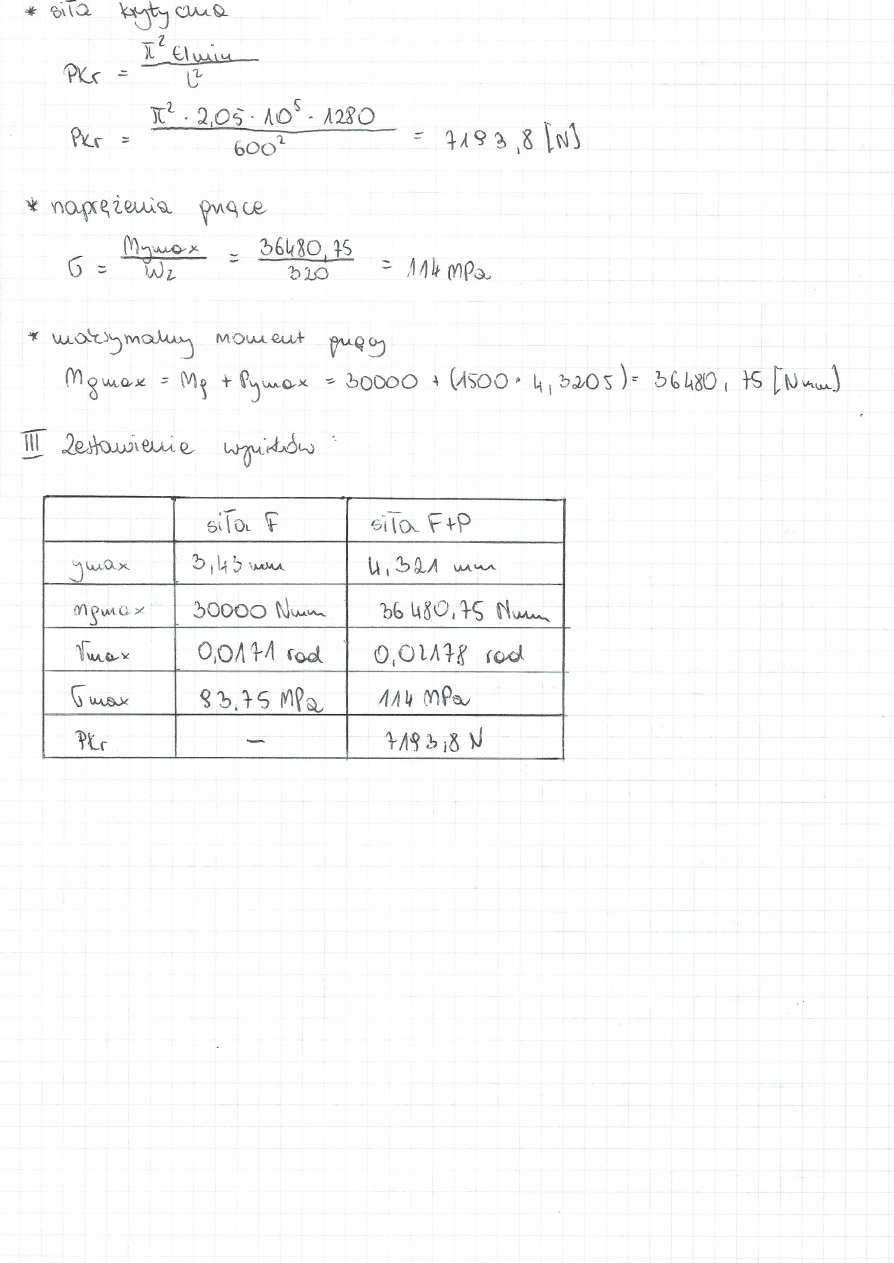 * siła krytyczna
Pkr = π² EImin / l²
Pkr = π² · 2,05 · 10⁵ · 1280 / 600² = 7193,8 [N]
* naprężenia gnące
σ = Mgmax / Wz = 36480,75 / 320 = 114 MPa
* maksymalny moment gnący
Mgmax = Mg + Pymax = 30000 + (1500 · 4,3205) = 36480,75 [Nmm]
III Zestawienie wyników:
siła F siła F+P
ymax 3,43 mm 4,321 mm
Mgmax 30000 Nmm 36480,75 Nmm
max 0,0171 rad 0,02178 rad
σmax 93,75 MPa 114 MPa
Pkr — 7193,8 N